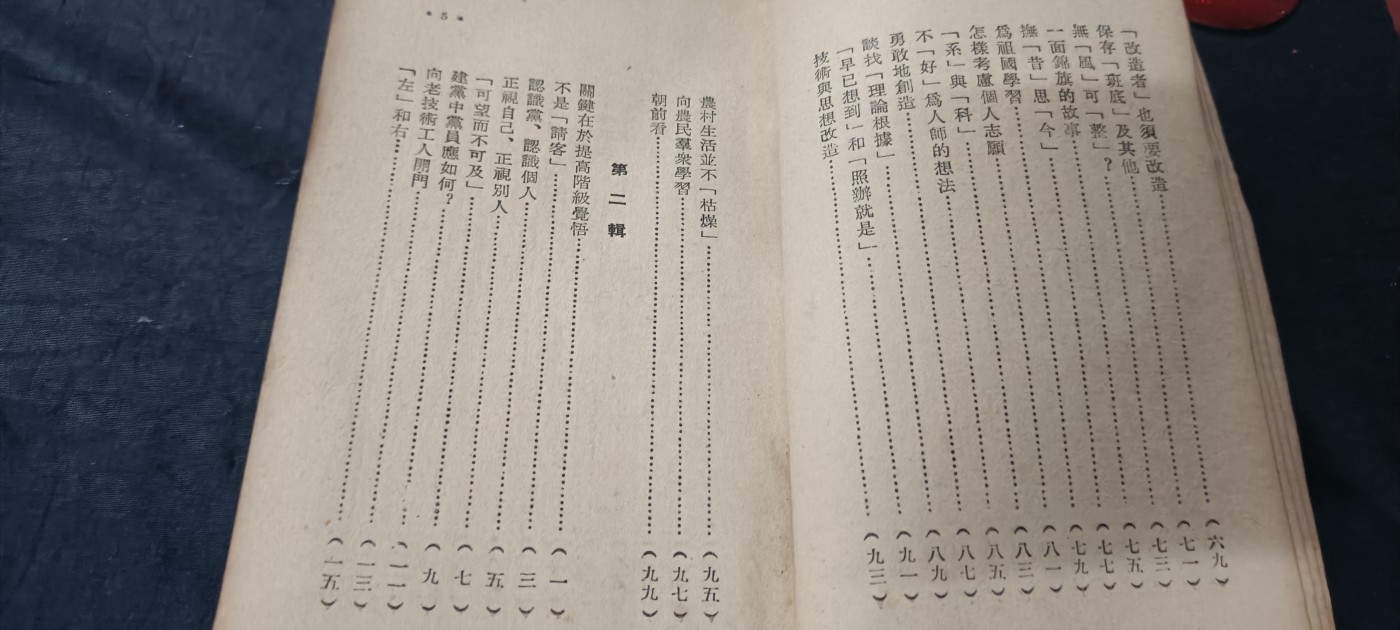 「改造者」也須要改造……(六九)
保存「班底」及其他……(七一)
無「風」可「整」?……(七三)
一面錦旗的故事……(七五)
撫「昔」思「今」……(七七)
爲祖國學習……(七九)
怎樣考慮個人志願……(八一)
「系」與「科」……(八三)
不「好」爲人師的想法……(八五)
勇敢地創造……(八七)
談找「理論根據」……(八九)
「早已想到」和「照辦就是」……(九一)
技術與思想改造……(九三)
農村生活並不「枯燥」……(九五)
向農民羣衆學習……(九七)
朝前看……(九九)
第二輯
關鍵在於提高階級覺悟……(一)
不是「請客」……(三)
認識黨、認識個人……(五)
正視自己、正視別人……(七)
「可望而不可及」……(九)
建黨中黨員應如何?……(一一)
向老技術工人開門……(一三)
「左」和右……(一五)
* 5 *